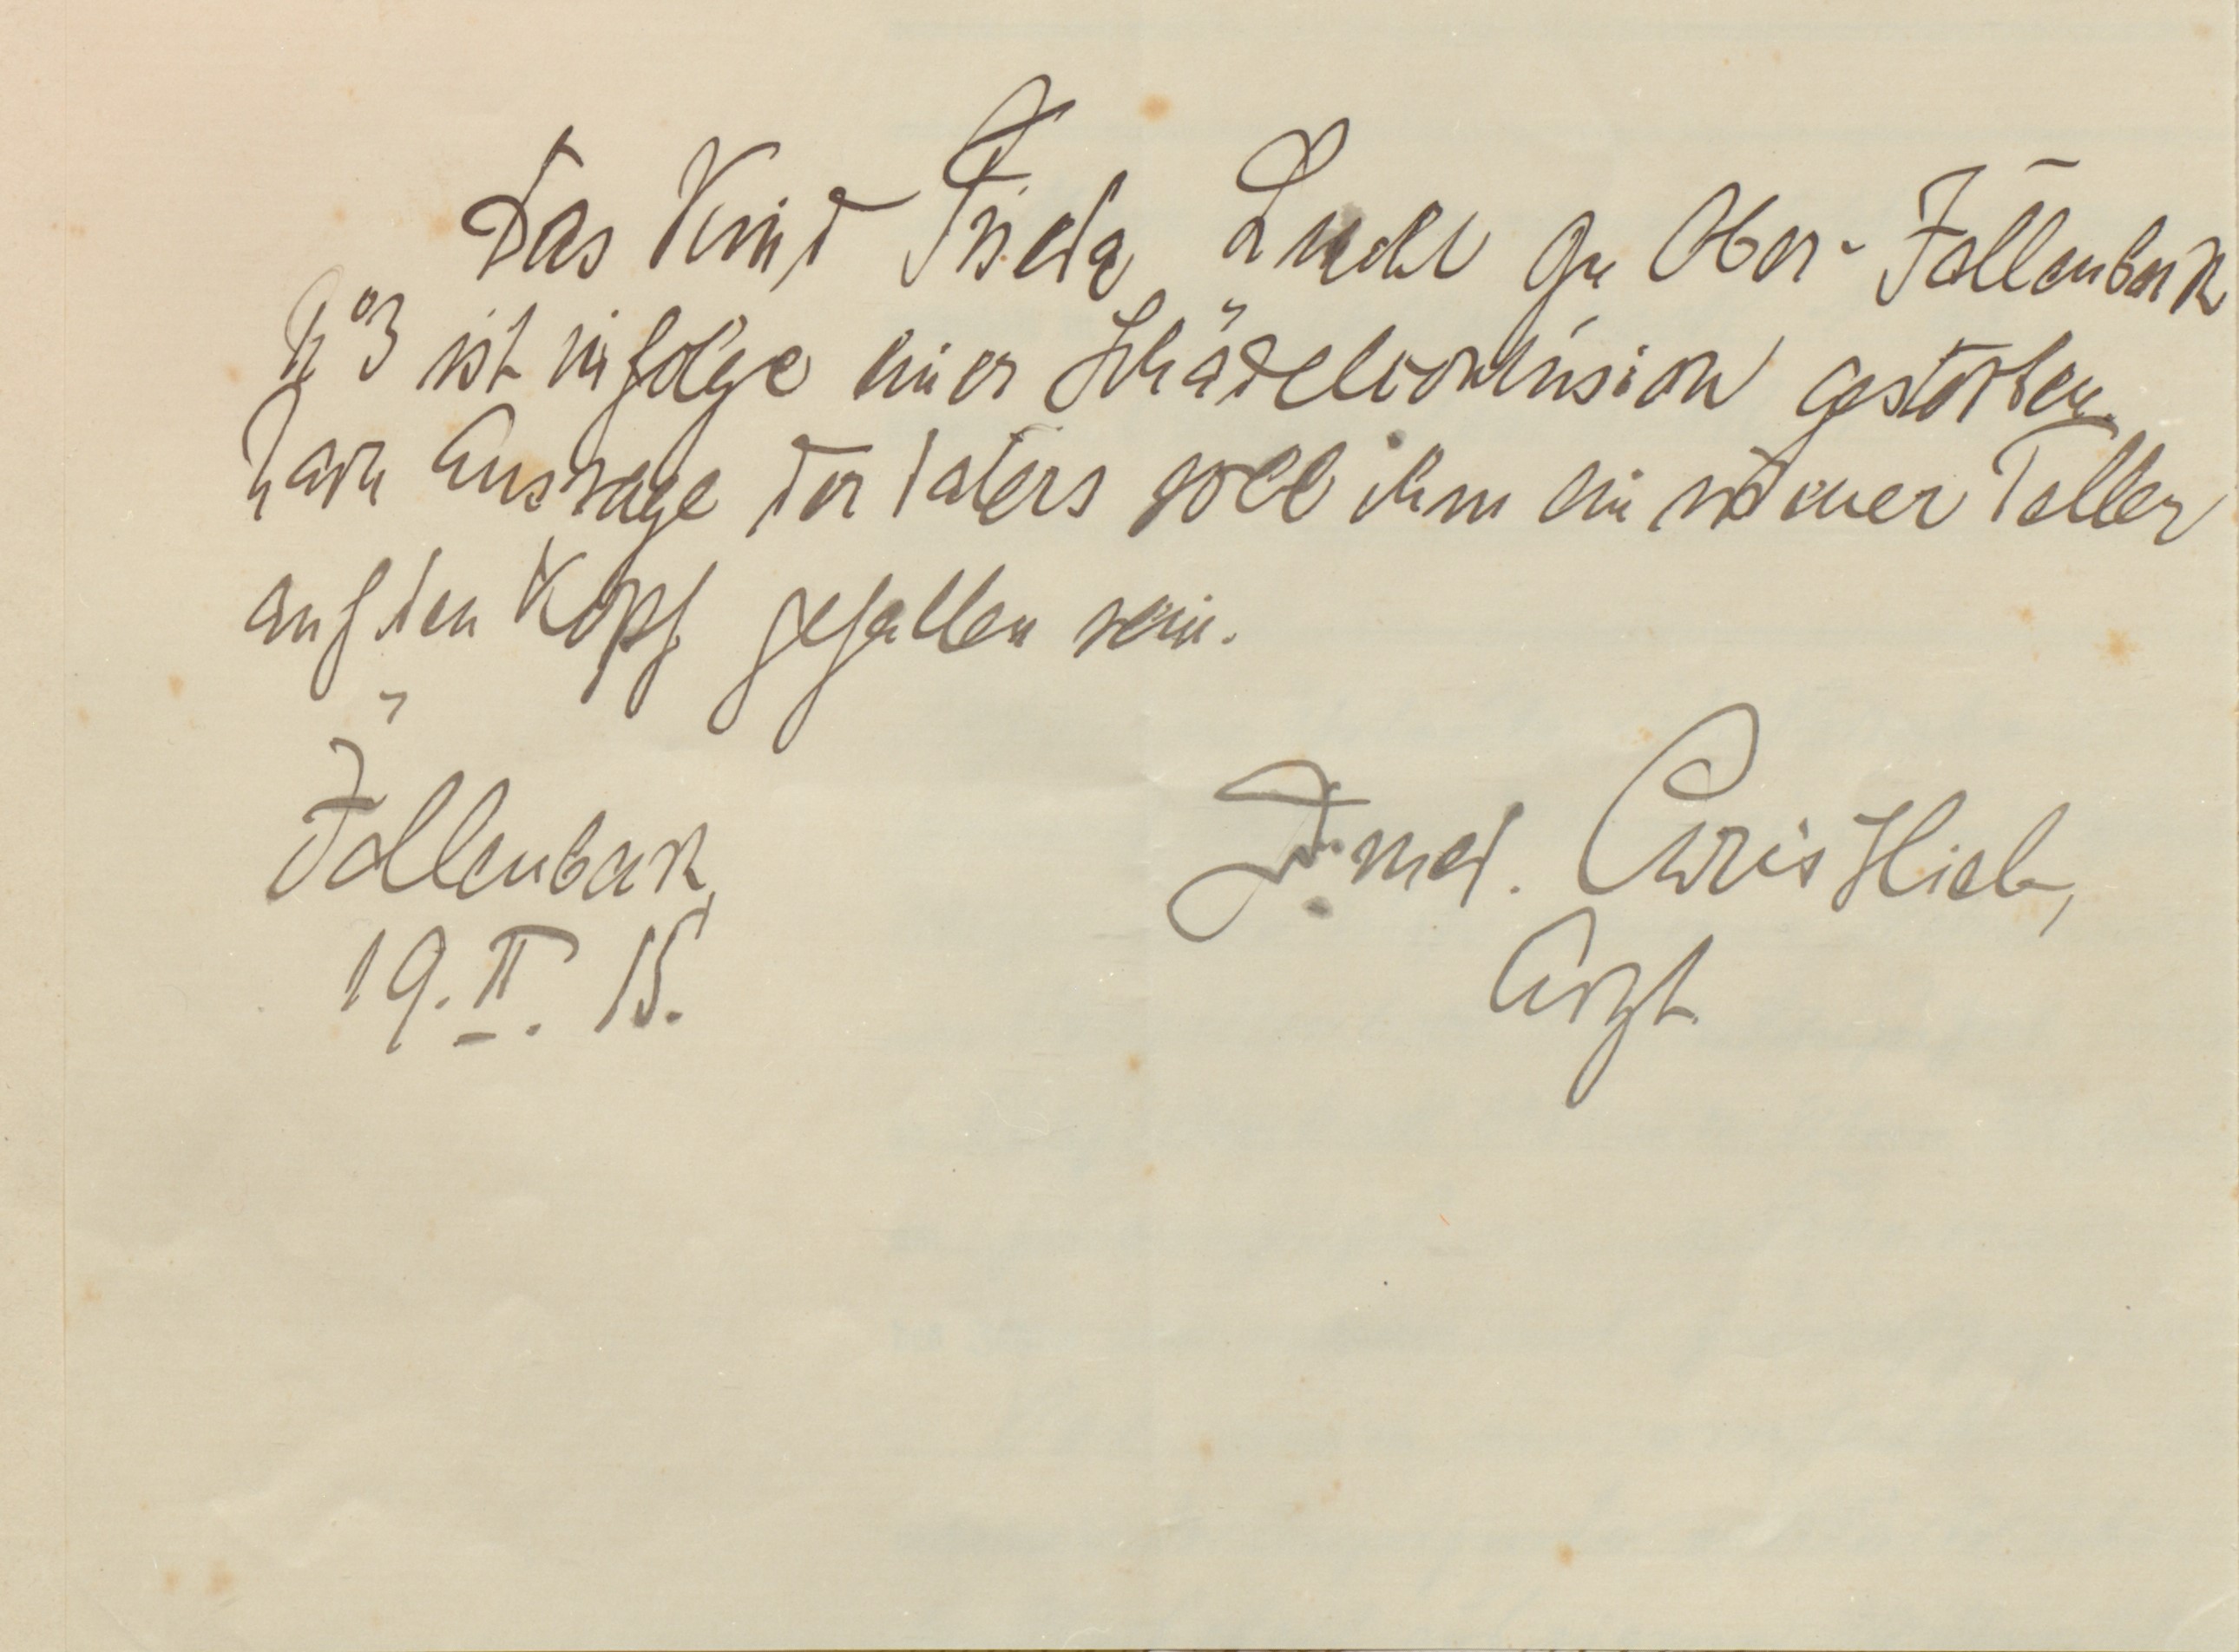 Das Kind Frieda zu Ober-Jöllenbeck
N°3 ist infolge einer Schädelcontusion gestorben.
Nach Aussage des Vaters soll ihm ein Teller
auf den Kopf gefallen sein.
Jöllenbeck, Dr. med. Christlieb,
19. II. 15. Arzt